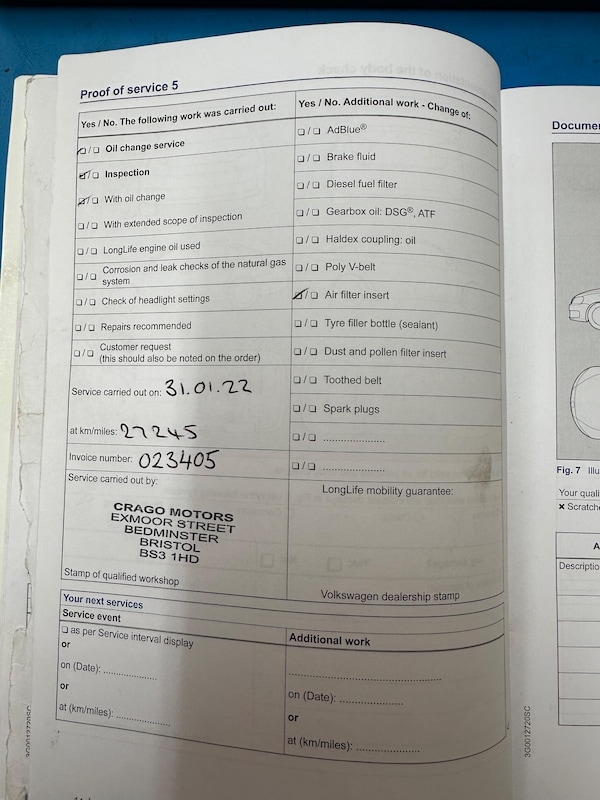 Proof of service 5
Yes / No. The following work was carried out:
☑/❏ Oil change service
☑/❏ Inspection
☑/❏ With oil change
❏/❏ With extended scope of inspection
❏/❏ LongLife engine oil used
❏/❏ Corrosion and leak checks of the natural gas
system
❏/❏ Check of headlight settings
❏/❏ Repairs recommended
❏/❏ Customer request
(this should also be noted on the order)
Yes / No. Additional work - Change of:
❏/❏ AdBlue®
❏/❏ Brake fluid
❏/❏ Diesel fuel filter
❏/❏ Gearbox oil: DSG®, ATF
❏/❏ Haldex coupling: oil
❏/❏ Poly V-belt
☑/❏ Air filter insert
❏/❏ Tyre filler bottle (sealant)
❏/❏ Dust and pollen filter insert
❏/❏ Toothed belt
❏/❏ Spark plugs
❏/❏ .....................
❏/❏ .....................
Service carried out on: 31.01.22
at km/miles: 27245
Invoice number: 023405
Service carried out by:
CRAGO MOTORS
EXMOOR STREET
BEDMINSTER
BRISTOL
BS3 1HD
Stamp of qualified workshop
LongLife mobility guarantee:
Volkswagen dealership stamp
Your next services
Service event
❏ as per Service interval display
or
on (Date): ..................
or
at (km/miles): ..................
Additional work
..................................................
on (Date): .....................
or
at (km/miles): .....................
3G0012720SC
Fig. 7 Illu
Your quali
× Scratche
A
Descriptio